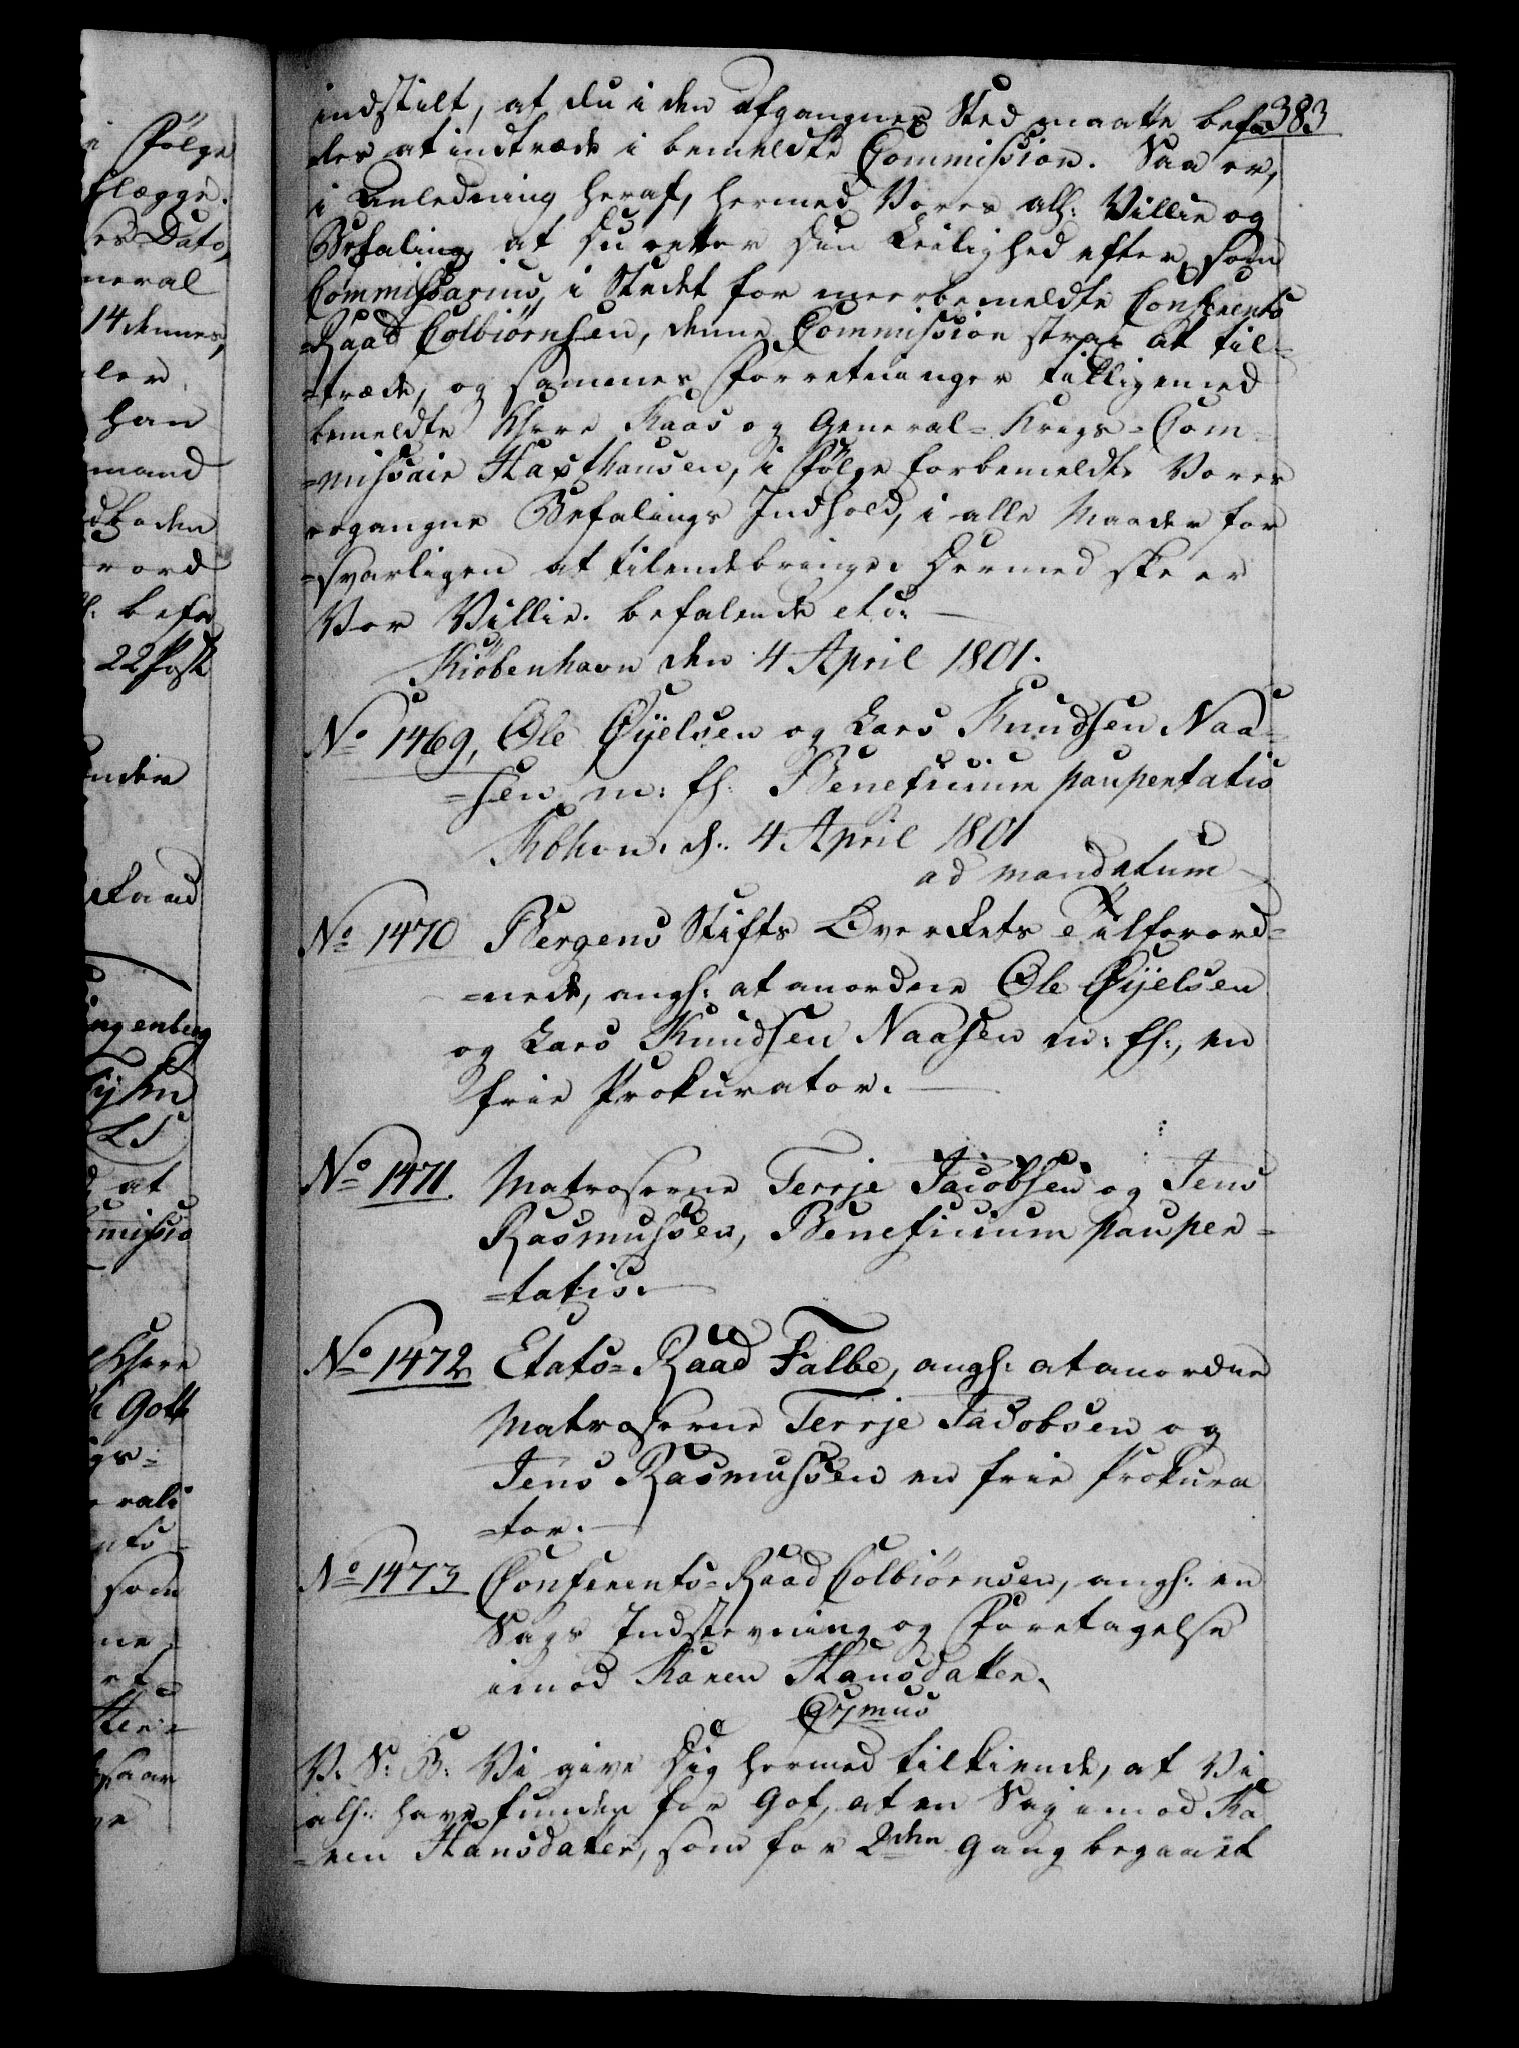 383
indstilt, at du i den afgangnes Sted maatte befa-
les at indtræde i bemeldte Commission. Saa er,
i Anledning heraf, hermed Vores alh: Villie og
Befaling, at Du retter din Leilighed efter, som
Commissarius, i Stedet for meerbemeldte Conferents
=Raad Colbiørnsen, denne Commission strax at til=
=træde, og sammes Forretninger tilligemed
bemeldte Hhrr Kaas og General=Krigs=Com=
=missair Haxthausen, i Følge forbemeldte Vores
ergangne Befalings Indhold, i alle Maader for
=svarligen at tilendebringe. Hermed skeer
Vor Villie. befalende etc:
Kiöbenhavn den 4 April 1801.
No 1469, Ole Øyelsen og Lars Knudsen Naa=
=sen m: fl: Beneficium paupertatis
Kbhvn. d: 4 April 1801
ad mandatum
No 1470 Bergens Stifts Overrets Tilforord=
=nede, angl: at anordne Ole Øyelsen
og Lars Knudsen Naasen m: fl:, en
frie Prokurator.
No 1471. Matroserne Terrje Jacobsen og Jens
Rasmussen, Beneficium pauper=
=tatis.
No 1472 Etats=Raad Falbe, angl: at anordne
Matroserne Terrje Jacobsen og
Jens Rasmussen en frie Prokura
=tor.
No 1473 Conferents=Raad Colbiørnsen, angl: en
Sags Indstevning og Foretagelse
imod Karen Hansdatter.
V. S. B: Vi give Dig hermed tilkiende, at Vi
alh: have funden for Got, at en Sag imod Ka
=ren Hansdatter, som for 2den Gang begaaet